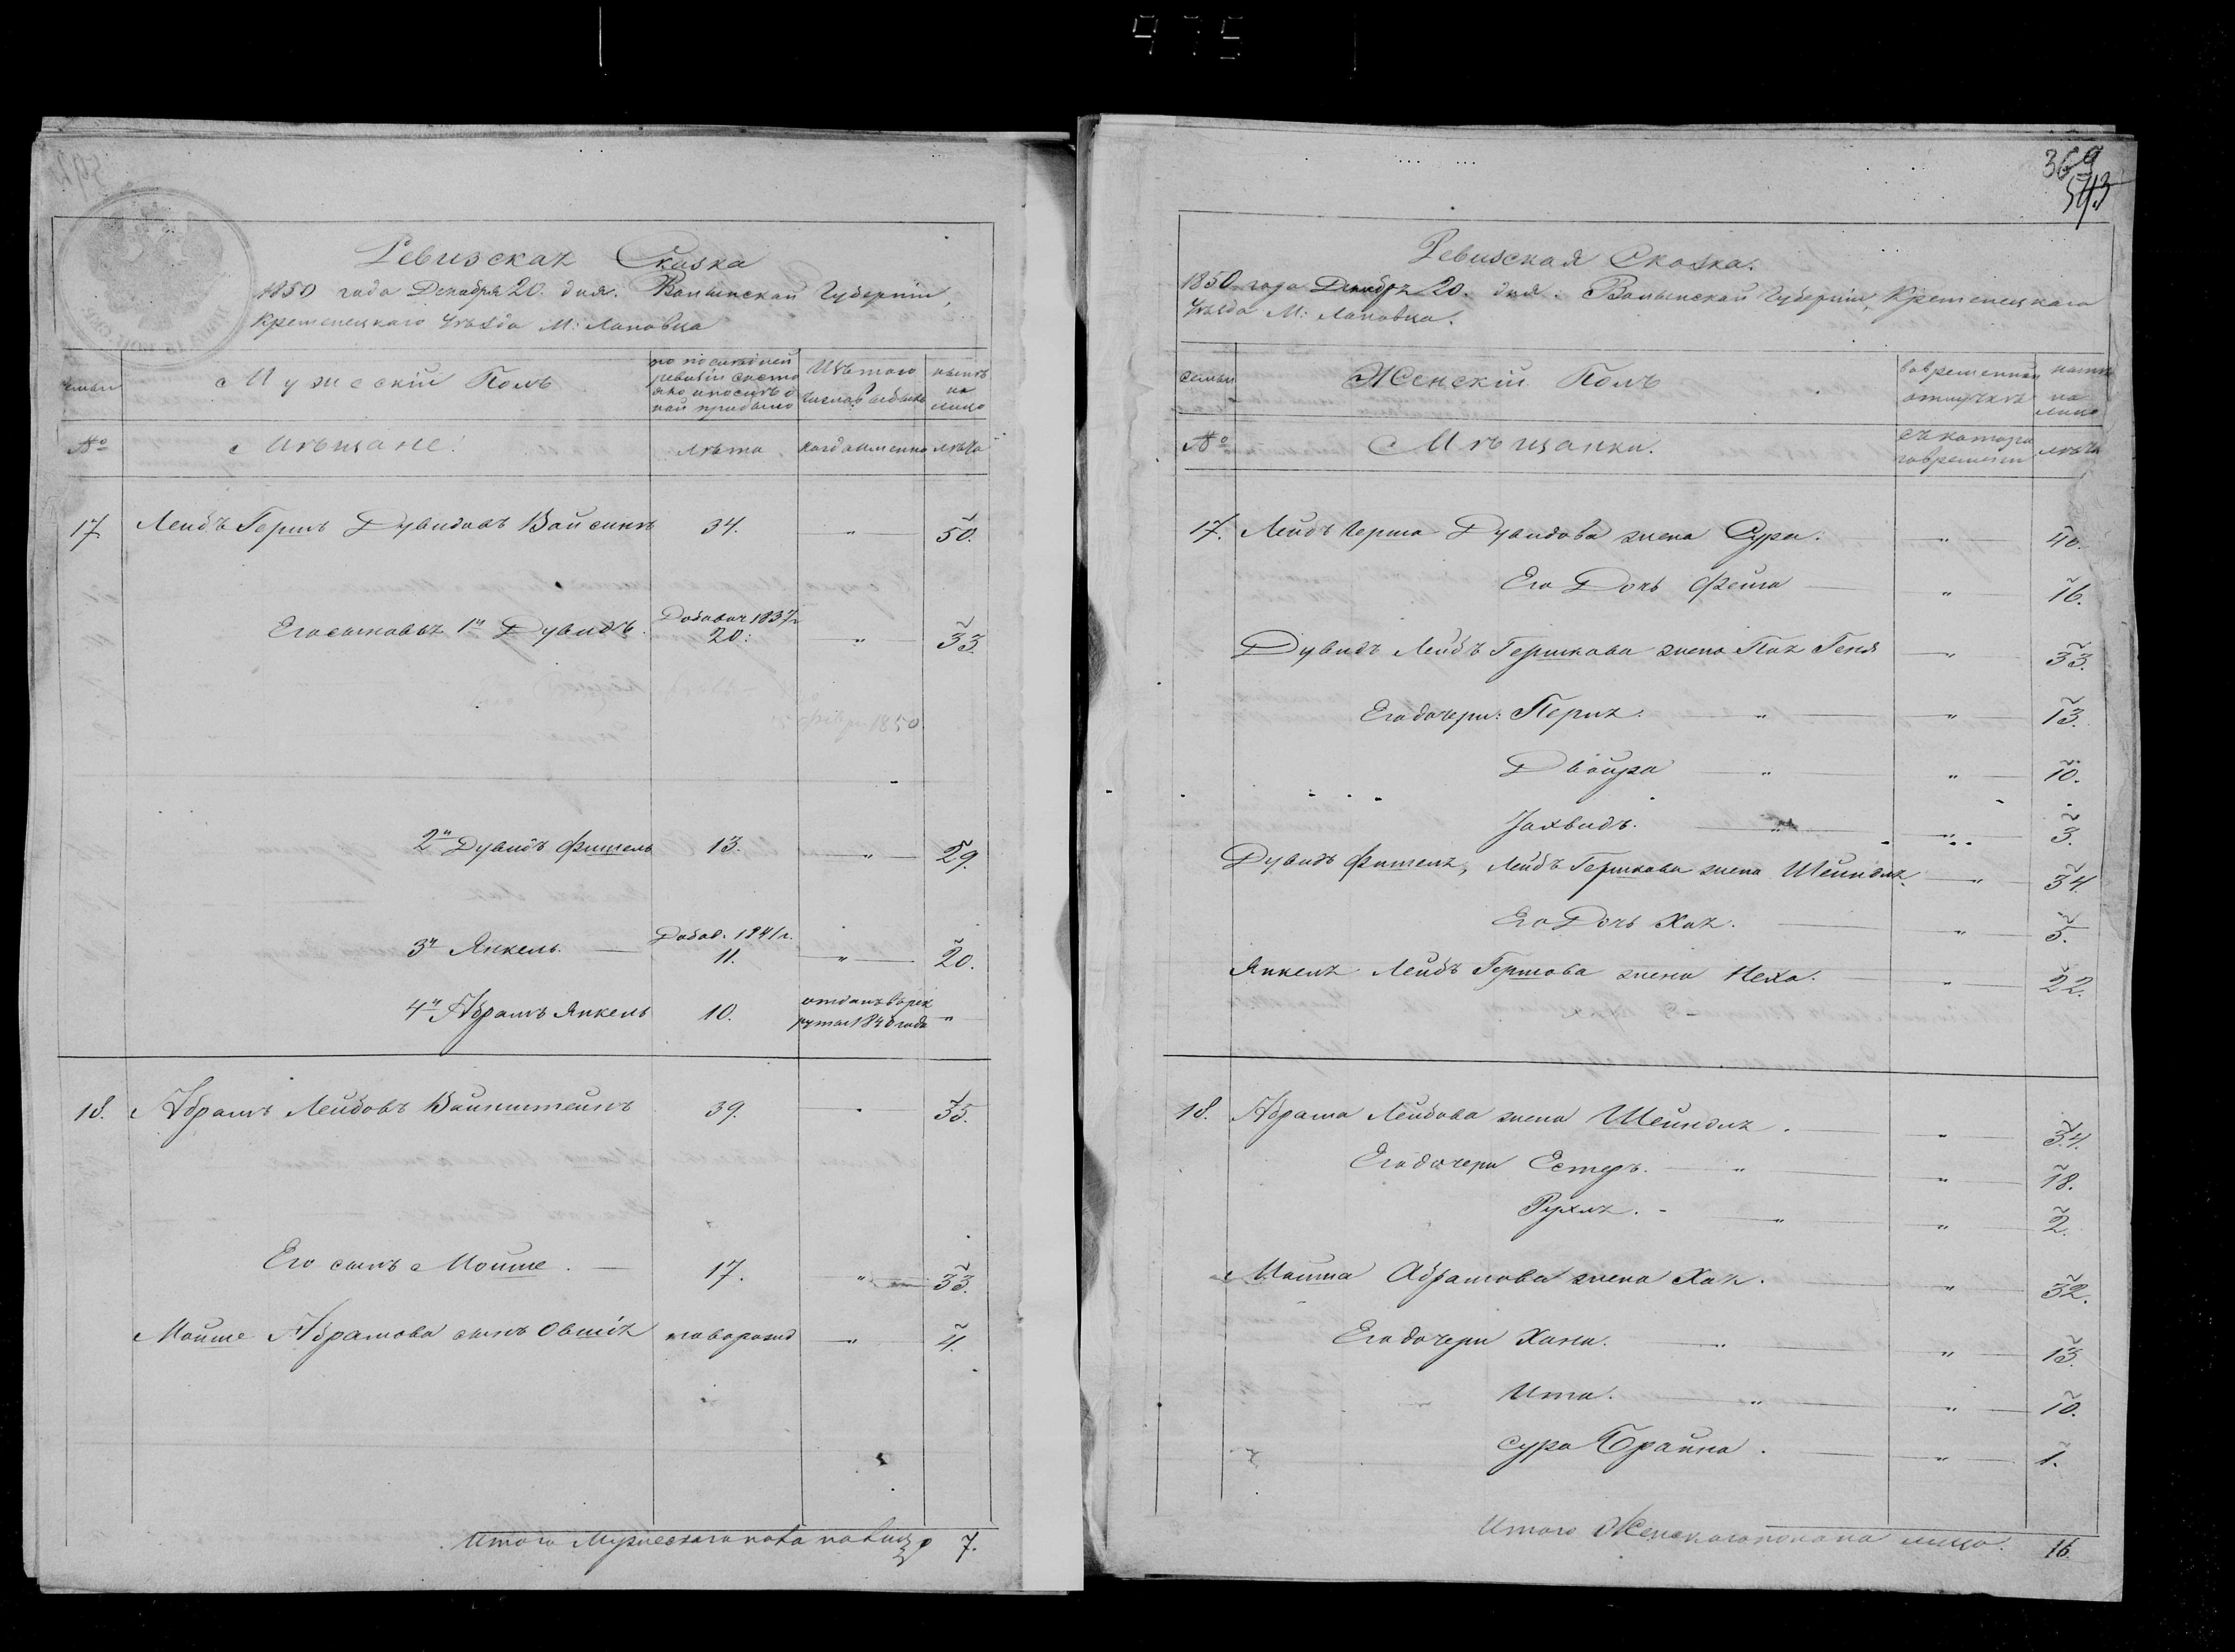 475
Ревизская Сказка
1850 года Декабря 20. дня. Волынской Губернии,
Кременецкаго Уѣзда М: Лановца
семьи
Мужескій Полъ
по последней
ревизіи состо
яло и после о
ной прибыло
Изъ того
числа выбыло
нынѣ
на
лицо
№
Мѣщане.
лѣта
когда именно
лѣта
17 Лейбъ Гершъ Дувидовъ Вайсинъ 34. " 50.
Его сыновья 1й Дувидъ. Добавоч 1837 20: " 33.
1850
2й Дувидъ Фишель 13. " 29.
3й Янкель. Добав. 1841 г. 11. " 20.
4й Абрамъ Янкель 10. отданъ въ рек
руты 1848 года "
18. Абрамъ Лейбовъ Вайнштейнъ 39. " 55.
Его сынъ Мошие. 17. " 33.
Мошие Абрамова сынъ Овшія новорожд " 4.
Итого Мужескаго пола на лицо 7.
369
543
Ревизская Сказка.
1850 года Декабря 20. дня. Волынской Губернии, Кременецкаго
Уѣзда М: Лановца.
семьи
Женскій Полъ
во временной
отлучкѣ
нынѣ
на
лицо
№
Мѣщанки.
съ котора
го времени
лѣта
17. Лейбъ Герша Дувидова жена Сура. " 40.
Его Дочь Фейга " 16.
Дувидъ Лейбъ Гершкова жена Пая Геня " 33.
Его дочери: Перля. " " 13.
Двойра " " 10.
Іохвидъ. " " 3.
Дувидъ Фишеля, Лейбъ Гершкова жена Шейндля. " 34.
Его Дочь Хая. " 5.
Янкеля Лейбъ Гершова жена Неха. " 22.
18. Абрама Лейбова жена Шейндля. " 54.
Его дочери Естеръ. " " 18.
Рухля. " " 2.
Мошиа Абрамова жена Хая. " 32.
Его дочери Хана. " " 13.
Ита. " " 10.
Сура Брайна. " 1.
Итого Женскаго пола на лицо. 16